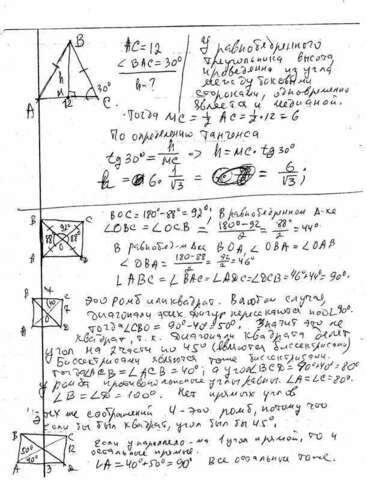 B
AC=12
∠BAC=30°
h-?
h
30°
A M 12 C
У равнобедренного
треугольника высота,
проведенна из угла
между боковыми
сторонами, одновременно
является и медианой.
Тогда MC = ½ AC = ½·12 = 6
По определению тангенса
tg30° = h/MC => h = MC·tg30°
h = 6·1/√3 = 6/√3;
BOC = 180°-88° = 92°; В равнобедренном Δ-ке
∠OBC = ∠OCB = (180°-92)/2 = 88/2 = 44°
В равнобед-м Δке BOA, ∠OBA = ∠OAB
∠OBA = (180-88)/2 = 92/2 = 46°
∠ABC = ∠BAC = ∠ADC = ∠DCB = 46°+44° = 90°.
Это ромб или квадрат. В любом случае,
диагонали этих фигур пересекаются под ∠90°.
Тогда ∠CBO = 90°-40° = 50°. Значит это не
квадрат, т.к. диагонали квадрата делят
угол на 2 части по 45° (являются биссектрисами)
Биссектрисами являются тоже биссектрисами.
Тогда ∠ACB = ∠ACB = 40°; а угол ∠BCD = 40°+40° = 80°
У ромба противоположные углы равны. ∠A = ∠C = 80°.
∠B = ∠D = 100°. Нет прямых углов
Из тех же соображений 4 - это ромб, потому что
если бы был квадрат, угол был бы 45°,
B C
50°
40°
12
A 3 D
Если у параллело- на 1 угол прямой, то и
остальные прямые.
∠A = 40°+50° = 90° Все остальные тоже.